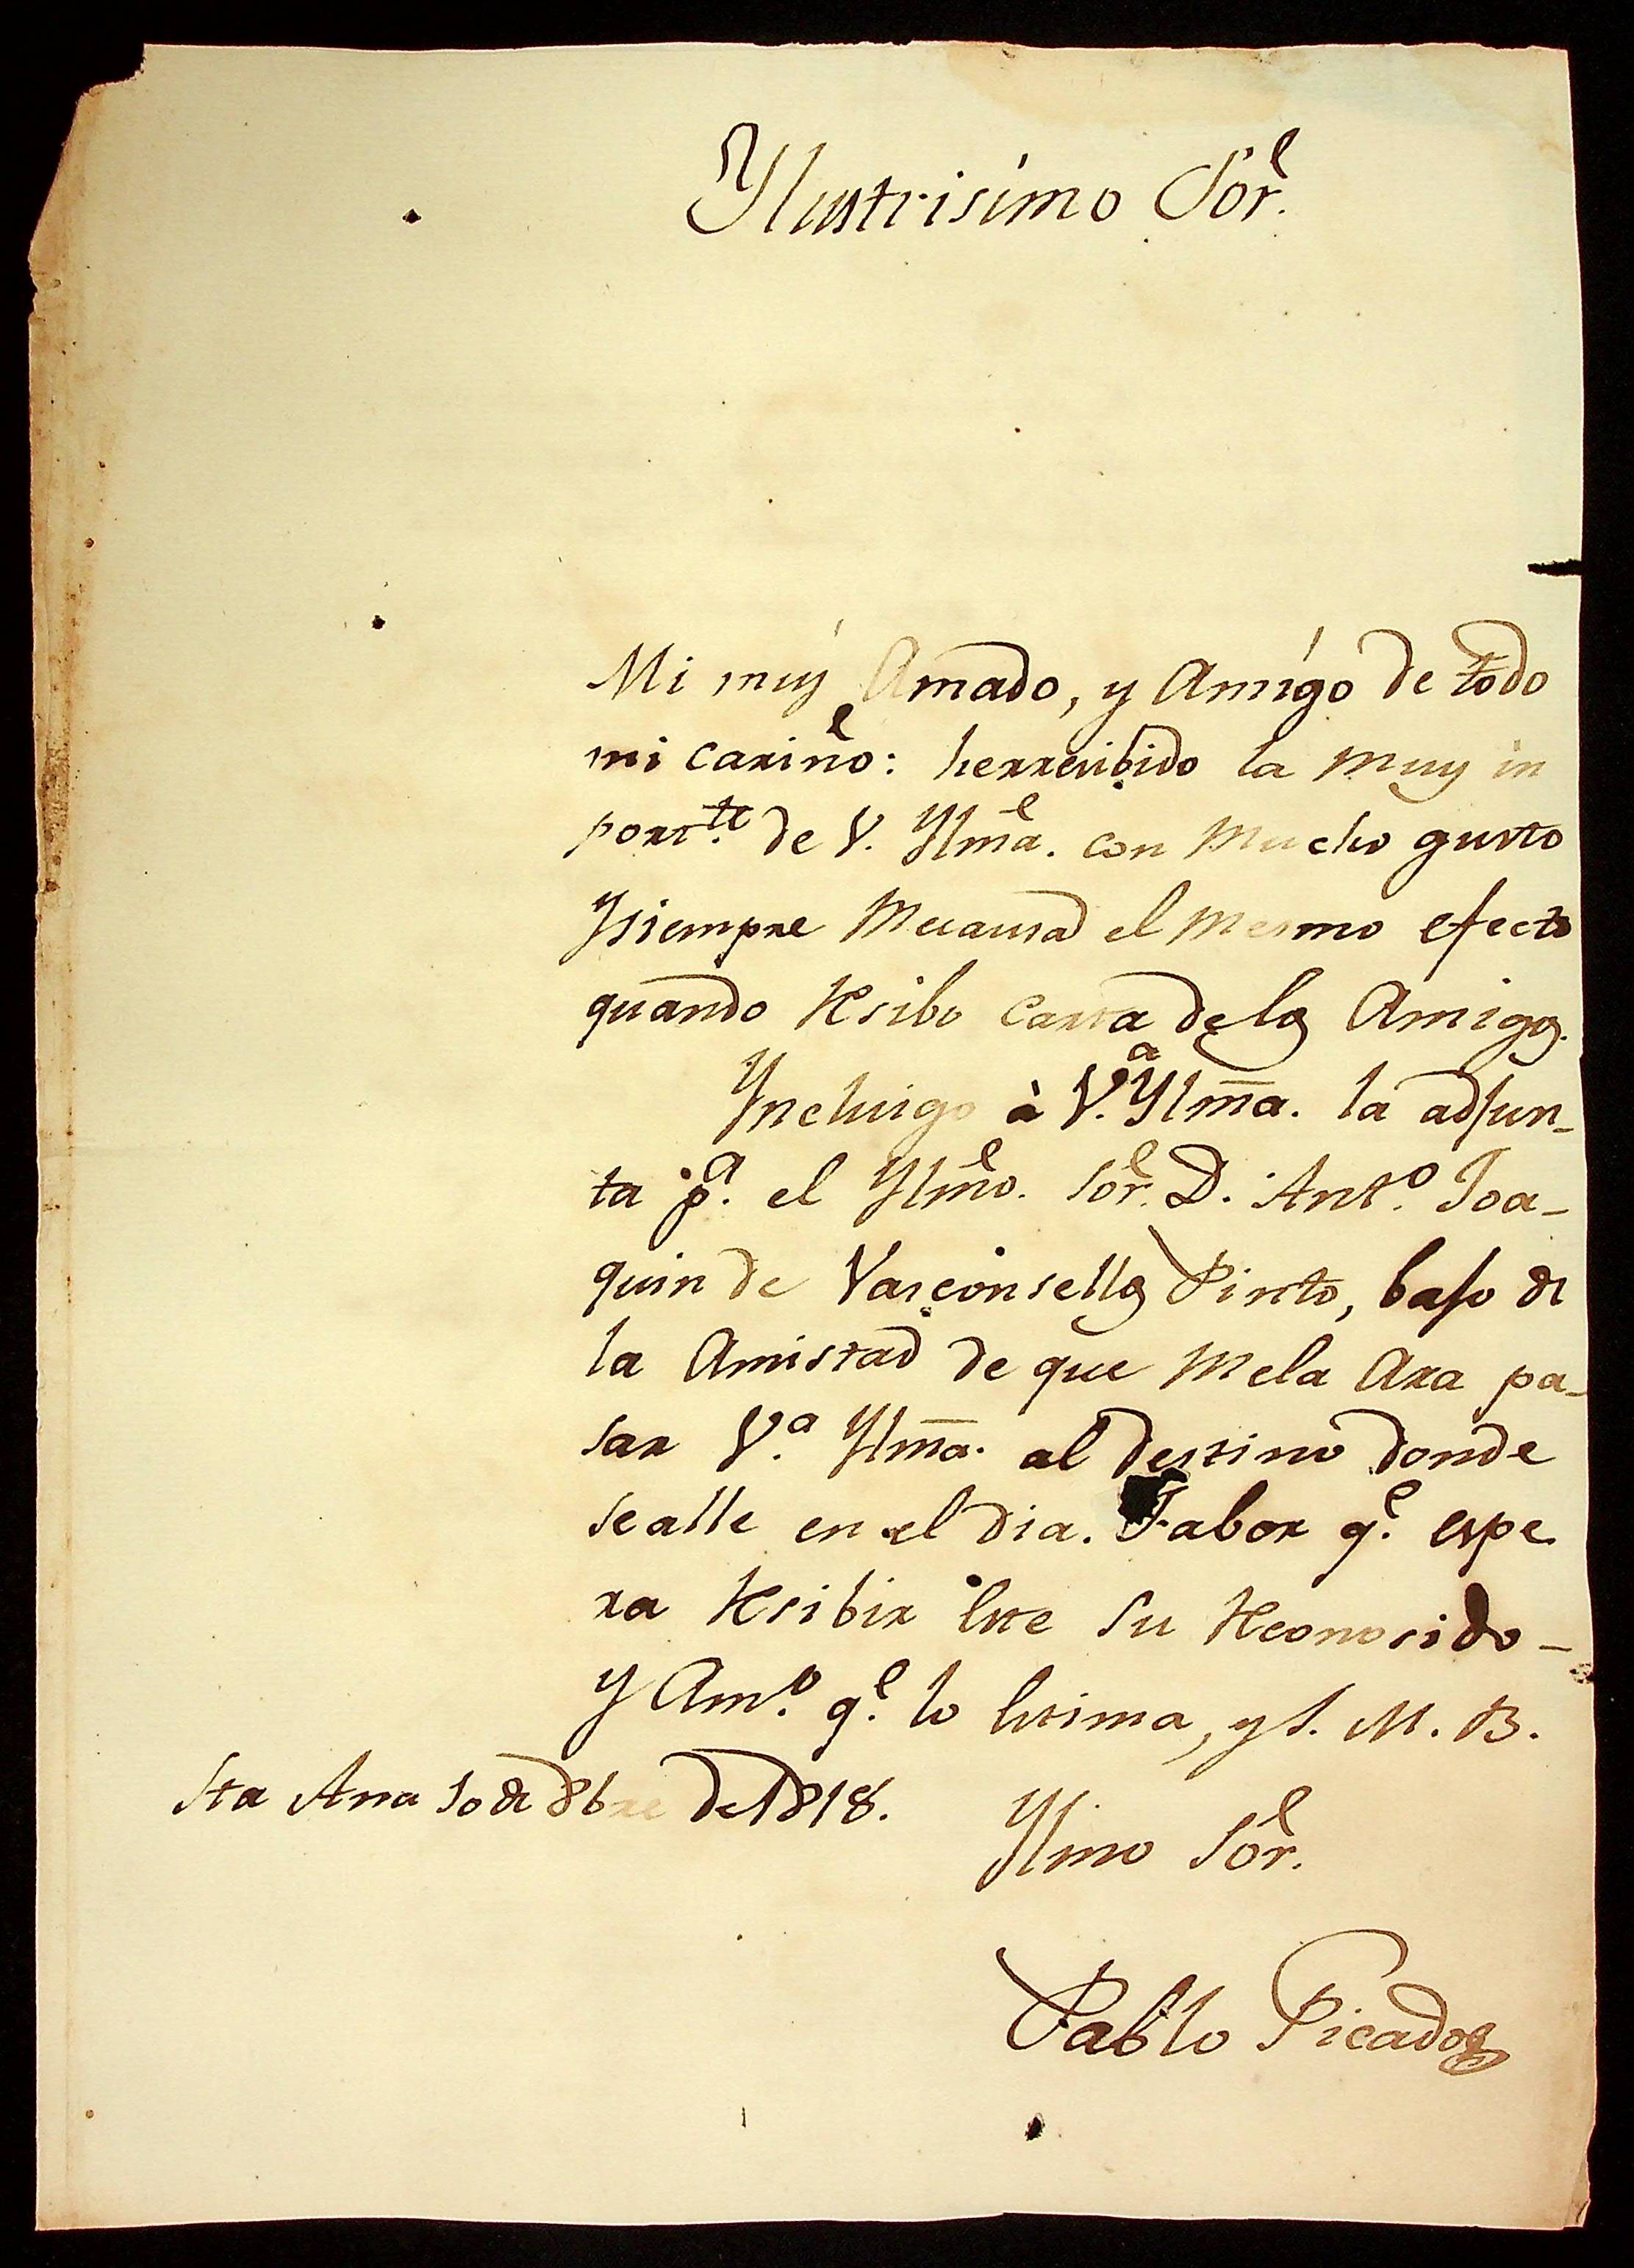 Ylustrisimo Sor.
Mi muy Amado, y Amigo de todo
mi cariño: herresibido la muy in
portte. de V. Ylma. con Mucho gusto
Ysiempre Mecausad el Mesmo efecto
quando Resibo carta delos Amigos.
Yncluigo à V.a Ylma. la adjun_
ta pa. el Ylmo. Sor. D. Anto. Joa_
quin de Vasconsellos Pinto, bajo de
la Amistad de que Mela Ara pa_
sar V.a Ylma. al destino donde
sealle en el dia. Fabor qe. espe
ra Resibir este su Reconosido _
y Amo. qe. lo estima, y S. M. B.
Sta Ana 10 de 8bre de 1818.
Ylmo Sor.
Pablo Picados